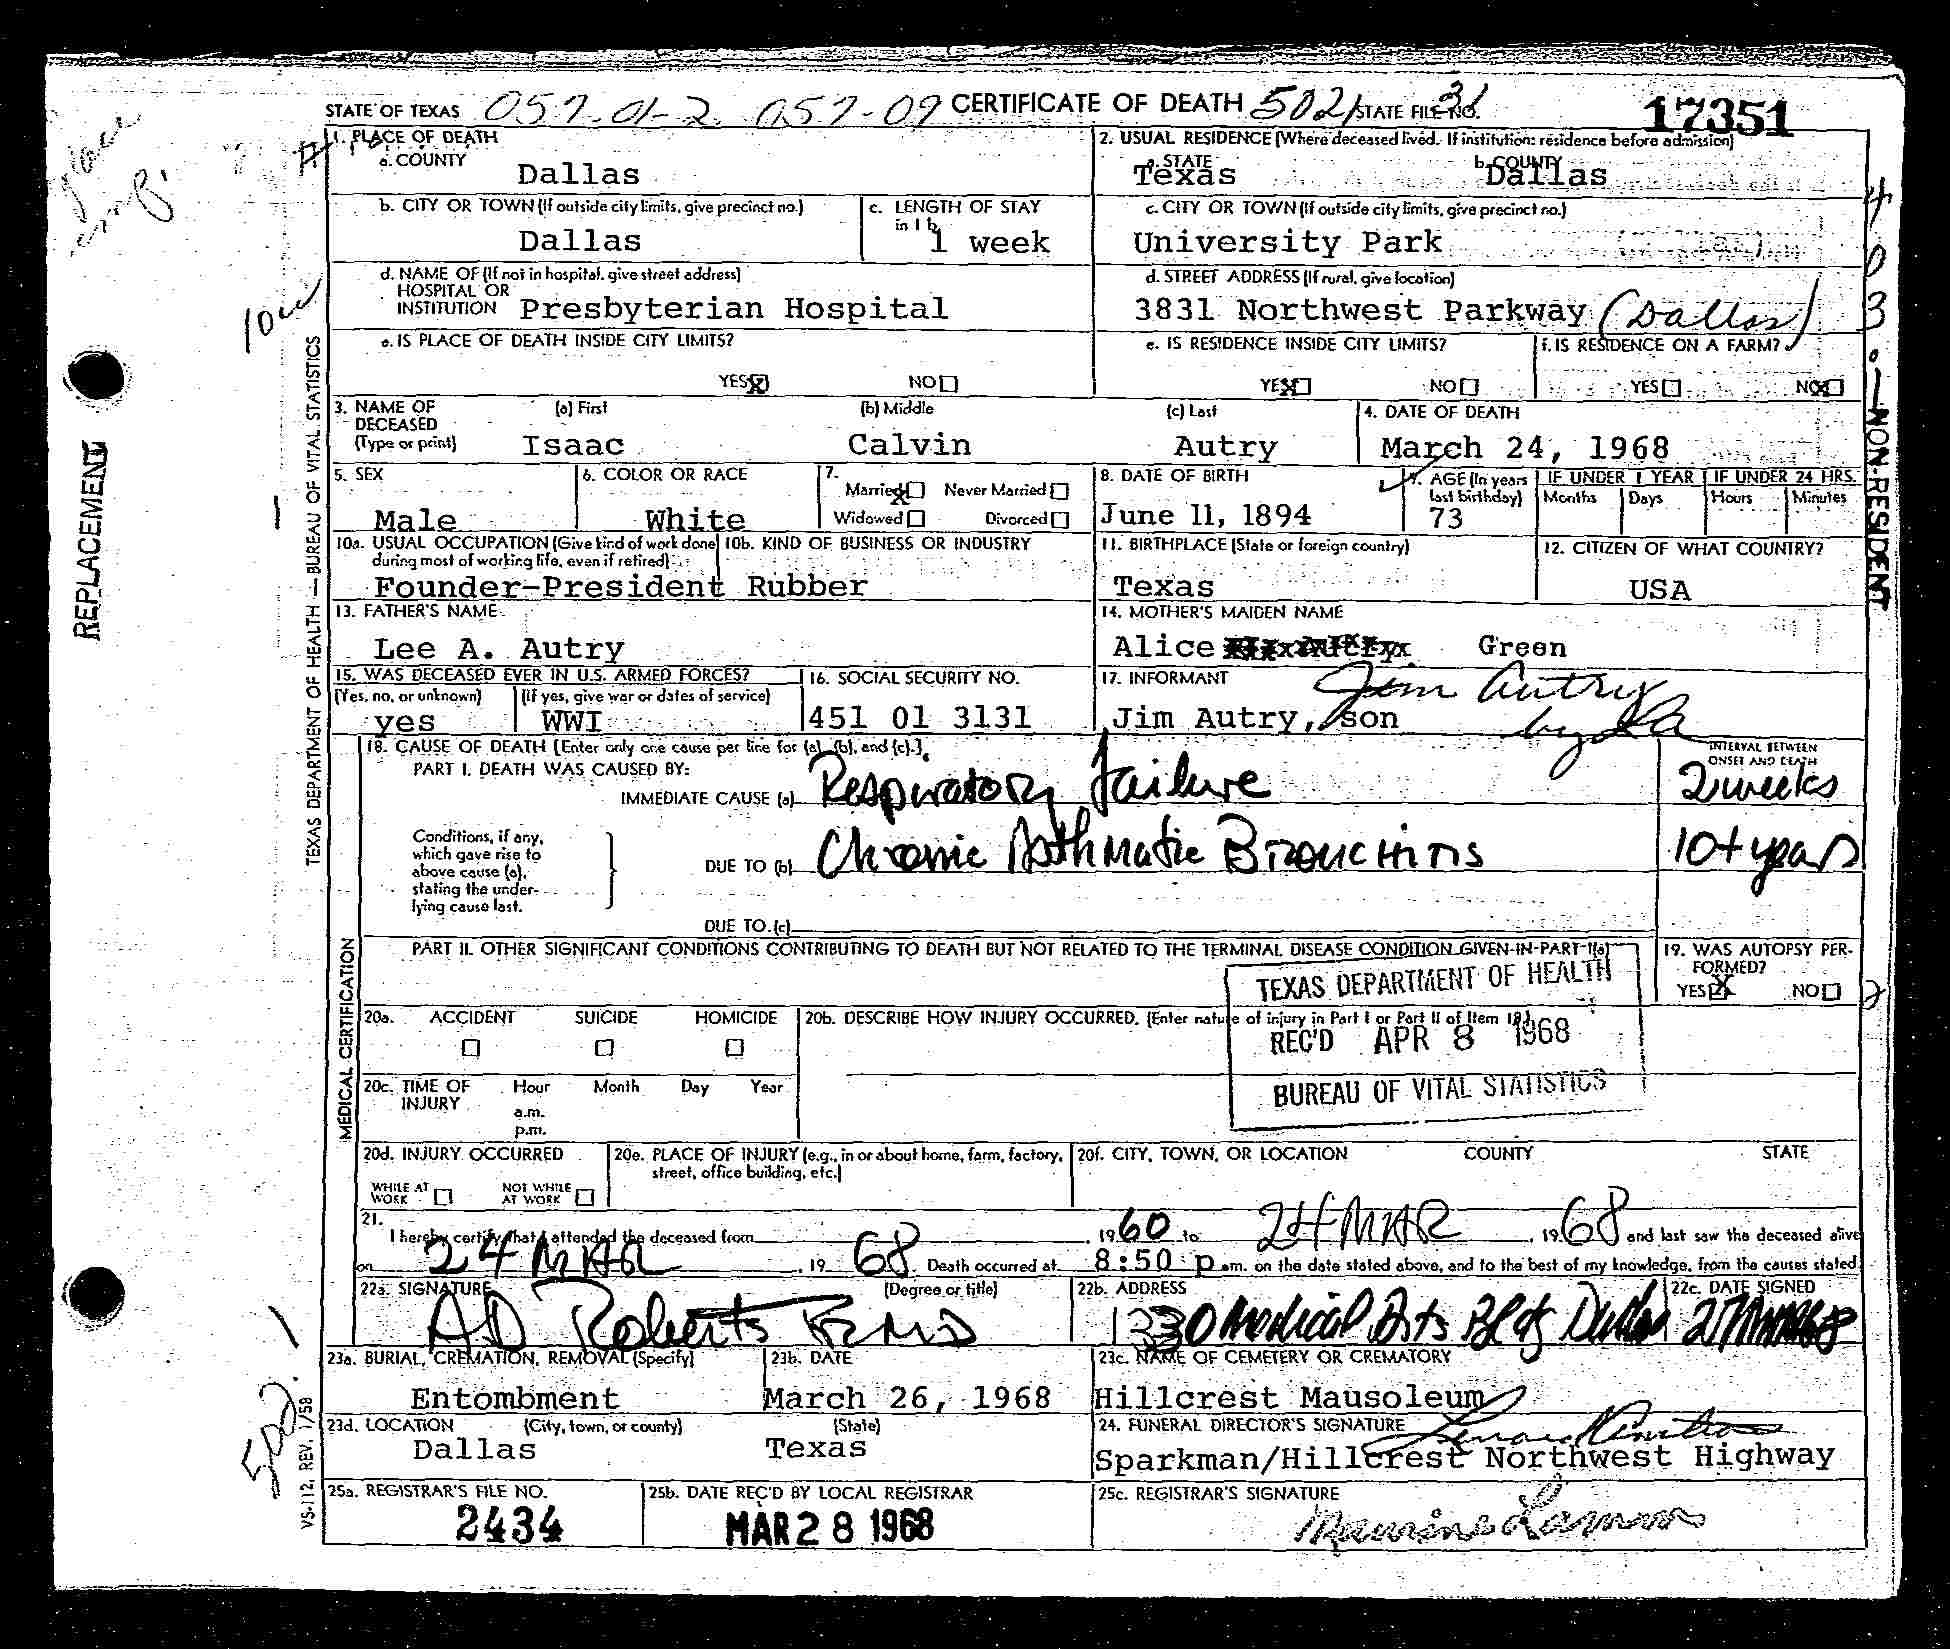 STATE OF TEXAS 057-01-2 057-09 CERTIFICATE OF DEATH 5021 STATE FILE NO. 31 17351
1. PLACE OF DEATH
a. COUNTY
Dallas
2. USUAL RESIDENCE (Where deceased lived. If institution: residence before admission)
a. STATE
Texas
b. COUNTY
Dallas
b. CITY OR TOWN (If outside city limits, give precinct no.)
Dallas
c. LENGTH OF STAY
in 1 b
1 week
c. CITY OR TOWN (If outside city limits, give precinct no.)
University Park
d. NAME OF (If not in hospital, give street address)
HOSPITAL OR
INSTITUTION Presbyterian Hospital
d. STREET ADDRESS (If rural, give location)
3831 Northwest Parkway (Dallas)
e. IS PLACE OF DEATH INSIDE CITY LIMITS?
YES X NO
e. IS RESIDENCE INSIDE CITY LIMITS?
YES X NO
f. IS RESIDENCE ON A FARM?
YES NO X
3. NAME OF
DECEASED
(Type or print)
(a) First
Isaac
(b) Middle
Calvin
(c) Last
Autry
4. DATE OF DEATH
March 24, 1968
5. SEX
Male
6. COLOR OR RACE
White
7.
Married X Never Married
Widowed Divorced
8. DATE OF BIRTH
June 11, 1894
9. AGE (In years
last birthday)
73
IF UNDER 1 YEAR
Months Days
IF UNDER 24 HRS.
Hours Minutes
10a. USUAL OCCUPATION (Give kind of work done
during most of working life, even if retired)
Founder-President
10b. KIND OF BUSINESS OR INDUSTRY
Rubber
11. BIRTHPLACE (State or foreign country)
Texas
12. CITIZEN OF WHAT COUNTRY?
USA
13. FATHER'S NAME
Lee A. Autry
14. MOTHER'S MAIDEN NAME
Alice Green
15. WAS DECEASED EVER IN U.S. ARMED FORCES?
(Yes, no, or unknown)
yes
(If yes, give war or dates of service)
WWI
16. SOCIAL SECURITY NO.
451 01 3131
17. INFORMANT
Jim Autry
Jim Autry, son
by
18. CAUSE OF DEATH [Enter only one cause per line for (a), (b), and (c).]
PART I. DEATH WAS CAUSED BY:
IMMEDIATE CAUSE (a) Respiratory Failure
INTERVAL BETWEEN
ONSET AND DEATH
2 weeks
Conditions, if any,
which gave rise to
above cause (a),
stating the under-
lying cause last.
DUE TO (b) Chronic Asthmatic Bronchitis
10+ years
DUE TO (c)
PART II. OTHER SIGNIFICANT CONDITIONS CONTRIBUTING TO DEATH BUT NOT RELATED TO THE TERMINAL DISEASE CONDITION GIVEN IN PART I(a)
19. WAS AUTOPSY PER-
FORMED?
YES X NO
TEXAS DEPARTMENT OF HEALTH
REC'D APR 8 1968
BUREAU OF VITAL STATISTICS
20a. ACCIDENT SUICIDE HOMICIDE
20b. DESCRIBE HOW INJURY OCCURRED. (Enter nature of injury in Part I or Part II of Item 18.)
20c. TIME OF
INJURY
Hour Month Day Year
a.m.
p.m.
20d. INJURY OCCURRED
WHILE AT
WORK
NOT WHILE
AT WORK
20e. PLACE OF INJURY (e.g., in or about home, farm, factory,
street, office building, etc.)
20f. CITY, TOWN, OR LOCATION COUNTY STATE
21.
I hereby certify that I attended the deceased from 1960 to 24 MAR, 1968 and last saw the deceased alive
on 24 MAR, 1968. Death occurred at 8:50 p.m. on the date stated above, and to the best of my knowledge, from the causes stated.
22a. SIGNATURE (Degree or title)
AD Roberts Jr MD
22b. ADDRESS
1330 Medical Arts Bldg Dallas
22c. DATE SIGNED
23a. BURIAL, CREMATION, REMOVAL (Specify)
Entombment
23b. DATE
March 26, 1968
23c. NAME OF CEMETERY OR CREMATORY
Hillcrest Mausoleum
23d. LOCATION (City, town, or county) (State)
Dallas Texas
24. FUNERAL DIRECTOR'S SIGNATURE
Sparkman/Hillcrest Northwest Highway
25a. REGISTRAR'S FILE NO.
2434
25b. DATE REC'D BY LOCAL REGISTRAR
MAR 28 1968
25c. REGISTRAR'S SIGNATURE
REPLACEMENT
TEXAS DEPARTMENT OF HEALTH — BUREAU OF VITAL STATISTICS
MEDICAL CERTIFICATION
VS-112, REV. 1/58
502.1
403.
—NON-RESIDENT
2